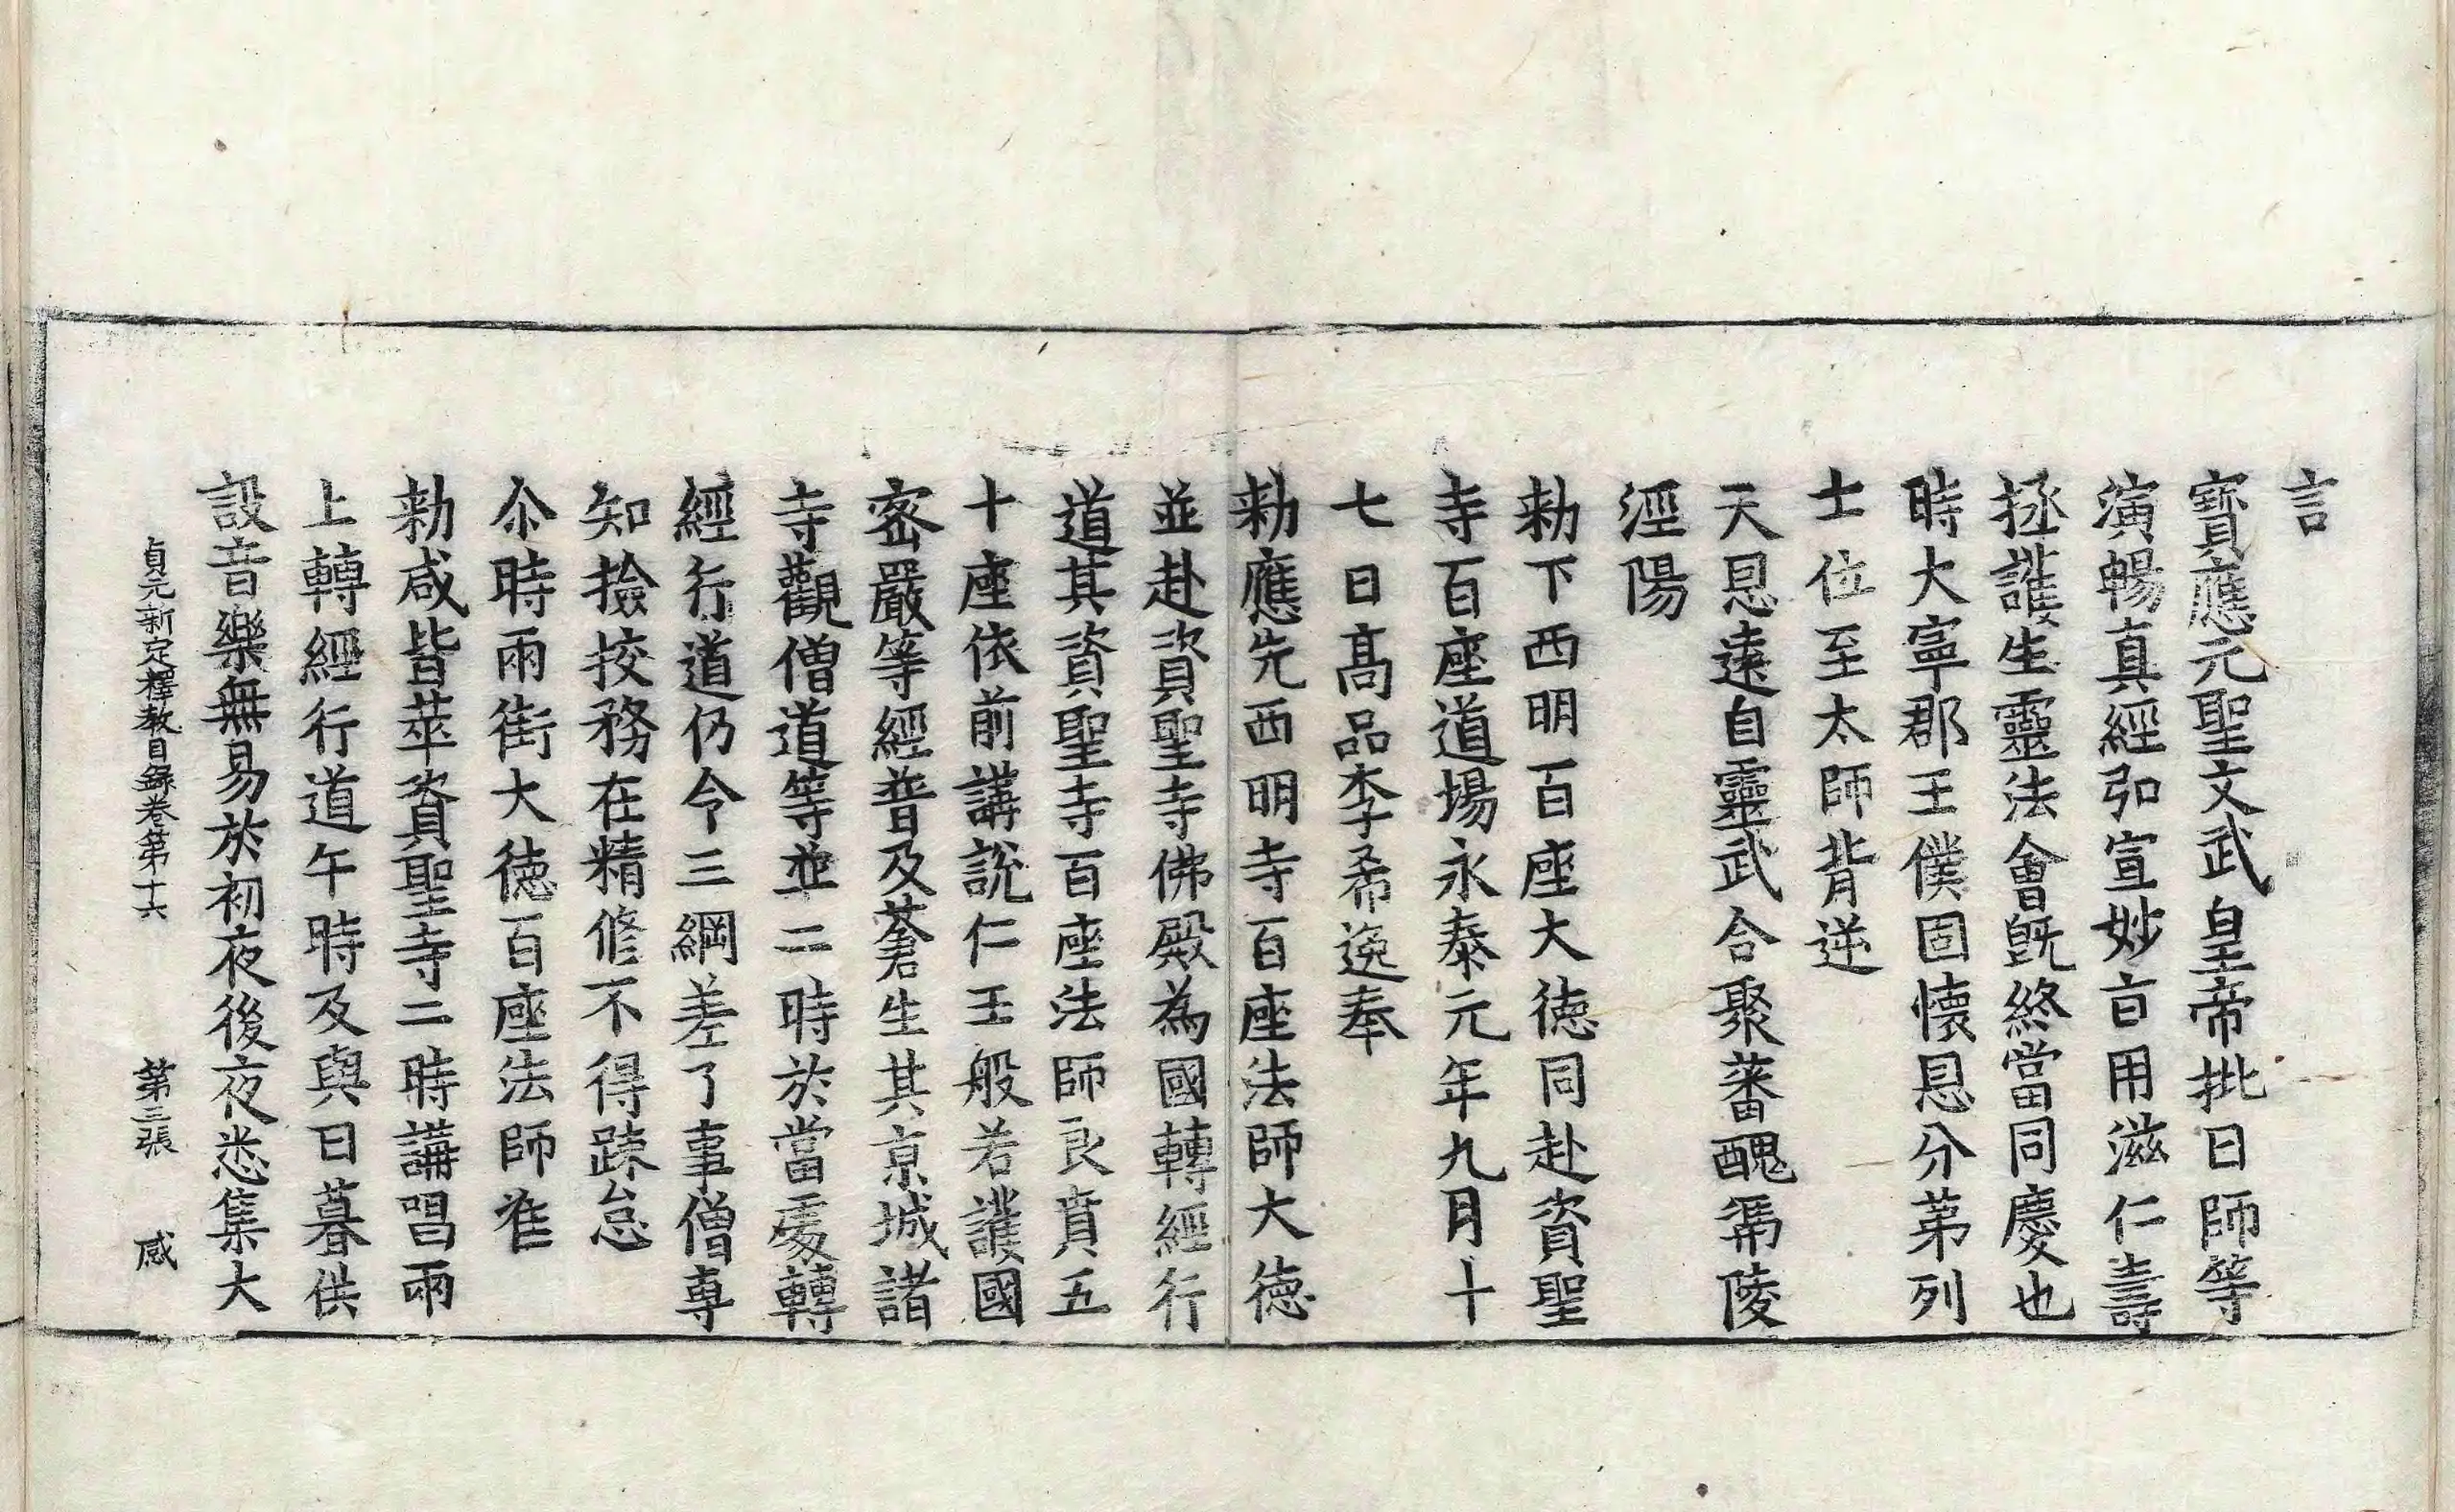 言
寶應元聖文武皇帝批曰師等
演暢真經弘宣妙旨用滋仁壽
拯護生靈法會既終當同慶也
時大寧郡王僕固懷恩分苐列
士位至太師背逆
天恩遠自靈武合聚蕃醜馮陵
涇陽
勑下西明百座大德同赴資聖
寺百座道場永泰元年九月十
七日高品李希逸奉
勑應先西明寺百座法師大德
並赴資聖寺佛殿為國轉經行
道其資聖寺百座法師良賁五
十座依前講說仁王般若護國
密嚴等經普及蒼生其京城諸
寺觀僧道等並二時於當處轉
經行道仍令三綱差了事僧專
知撿挍務在精修不得踈怠
尒時兩街大德百座法師准
勑咸皆萃資聖寺二時講唱兩
上轉經行道午時及與日暮供
設音樂無易於初夜後夜悉集大
貞元新定釋教目錄卷第十六 第三張 感